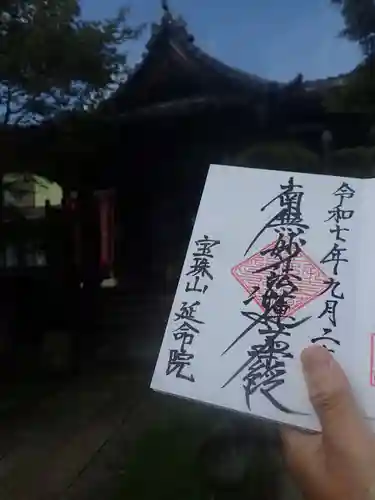 令和七年九月二
南無妙法蓮華経
宝珠山 延命院